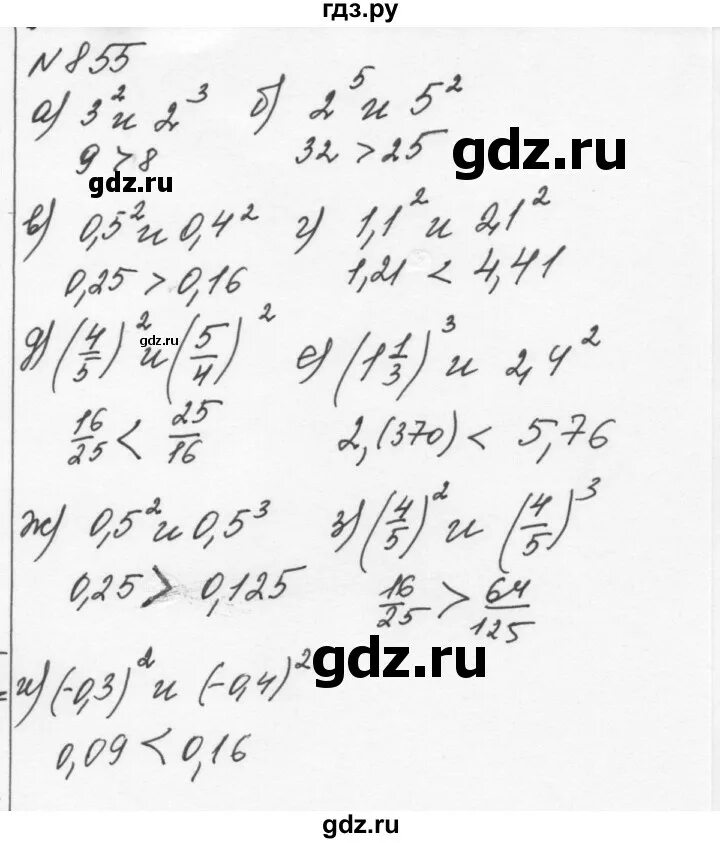 гдз.ру
№ 855
а) 3² и 2³ б) 2⁵ и 5²
9 > 8 32 > 25
gdz.ru
gdz.ru
в) 0,5² и 0,4² г) 1,1² и 2,1²
0,25 > 0,16 1,21 < 4,41
д) (4/5)² и (5/4)² е) (1 1/3)³ и 2,4²
gdz.ru
16/25 < 25/16 2,(370) < 5,76
ж) 0,5² и 0,5³ з) (4/5)² и (4/5)³
0,25 > 0,125 16/25 > 64/125
gdz.ru
и) (-0,3)² и (-0,4)²
0,09 < 0,16
gdz.ru